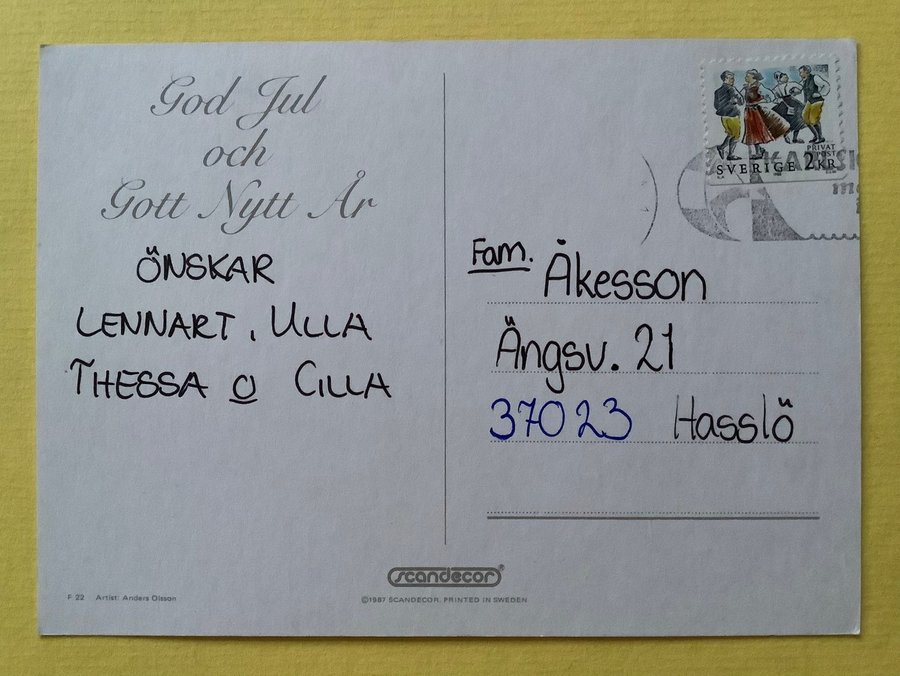 God Jul
och
Gott Nytt År
ÖNSKAR
LENNART, ULLA
THESSA o CILLA
PRIVAT
SVERIGE 2KR
Fam. Åkesson
Ängsv. 21
37023 Hasslö
scandecor®
F 22 Artist: Anders Olsson
©1987 SCANDECOR. PRINTED IN SWEDEN